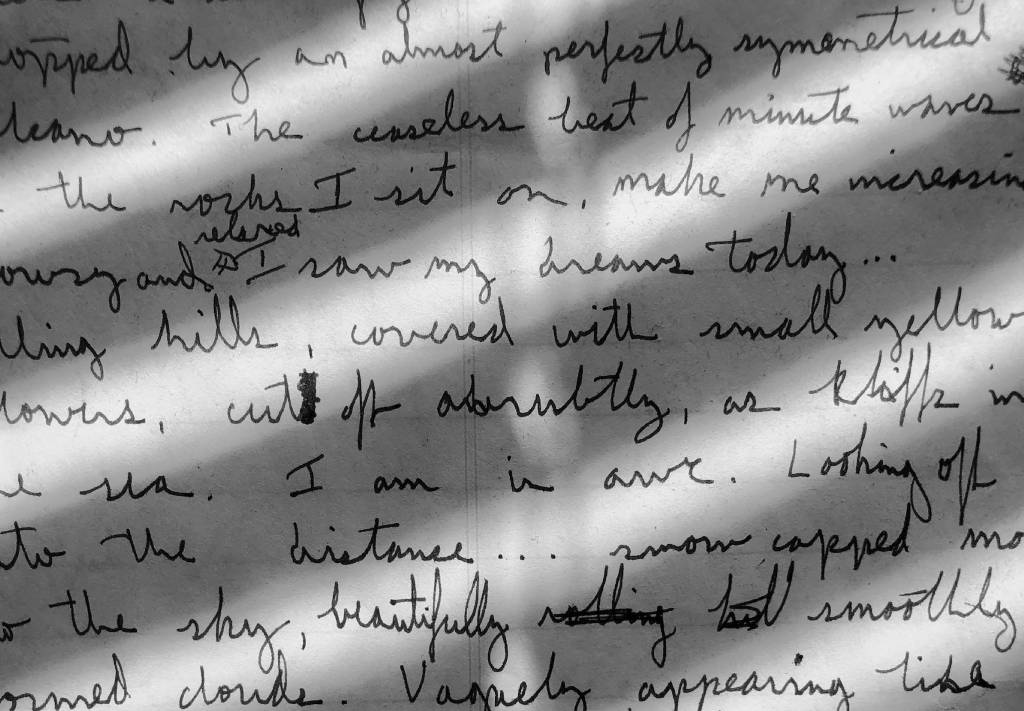 opped by an almost perfectly symmetrical
lcano. The ceaseless beat of minute waves
the rocks I sit on, make me increasin
relaxed
owsy and I saw my dreams today...
lling hills, covered with small yellow
lowers, cut off abrubtly, as kliffs in
e sea. I am in awe. Looking off
nto the distance... snow capped mo
o the sky, beautifully rolling but smoothly
ormed clouds. Vaguely appearing like